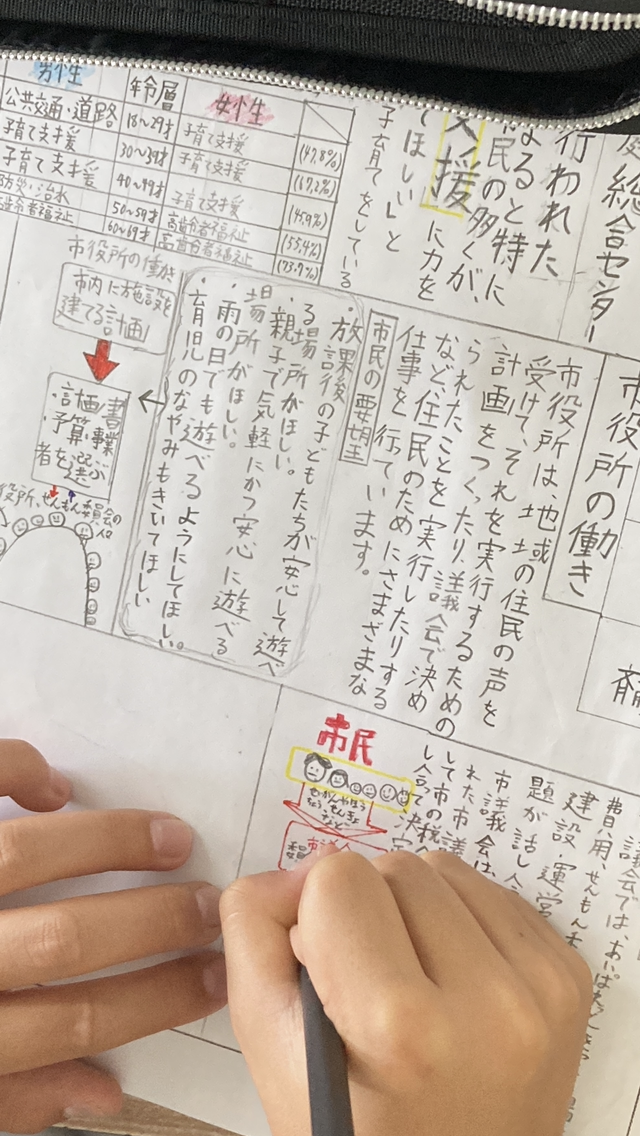 総合センター
行われた
よると特に
民の多くが、
援
に力を
てほしい」と
子育てをしている
男性
年齢層
女性
公共交通・道路
18〜29才
子育て支援
(47.8%)
子育て支援
30〜39才
子育て支援
(67.2%)
子育て支援
40〜49才
子育て支援
防災・治水
50〜59才
高齢者福祉
(55.4%)
高齢者福祉
60〜69才
高齢者福祉
(73.7%)
市役所の働き
市役所は、地域の住民の声を
受けて、それを実行するための
計画をつくったり、議会で決め
られたことを実行したりする
など、住民のためにさまざまな
仕事を行っています。
市民の要望
・放課後の子どもたちが安心して遊べ
る場所がほしい。
・親子で気軽にかつ安心に遊べる
場所がほしい。
・雨の日でも遊べるようにしてほしい。
・育児のなやみもきいてほしい
市役所の働き
市内に施設を
建てる計画
・計画書
・予算・事業
者を選ぶ
役所、せんもん委員会の
人
議会では、
費用、せんもん
建設・運営
題が話し
市議会は、
れた市議
して市の税
し合って決定
市民
せんきょ
など